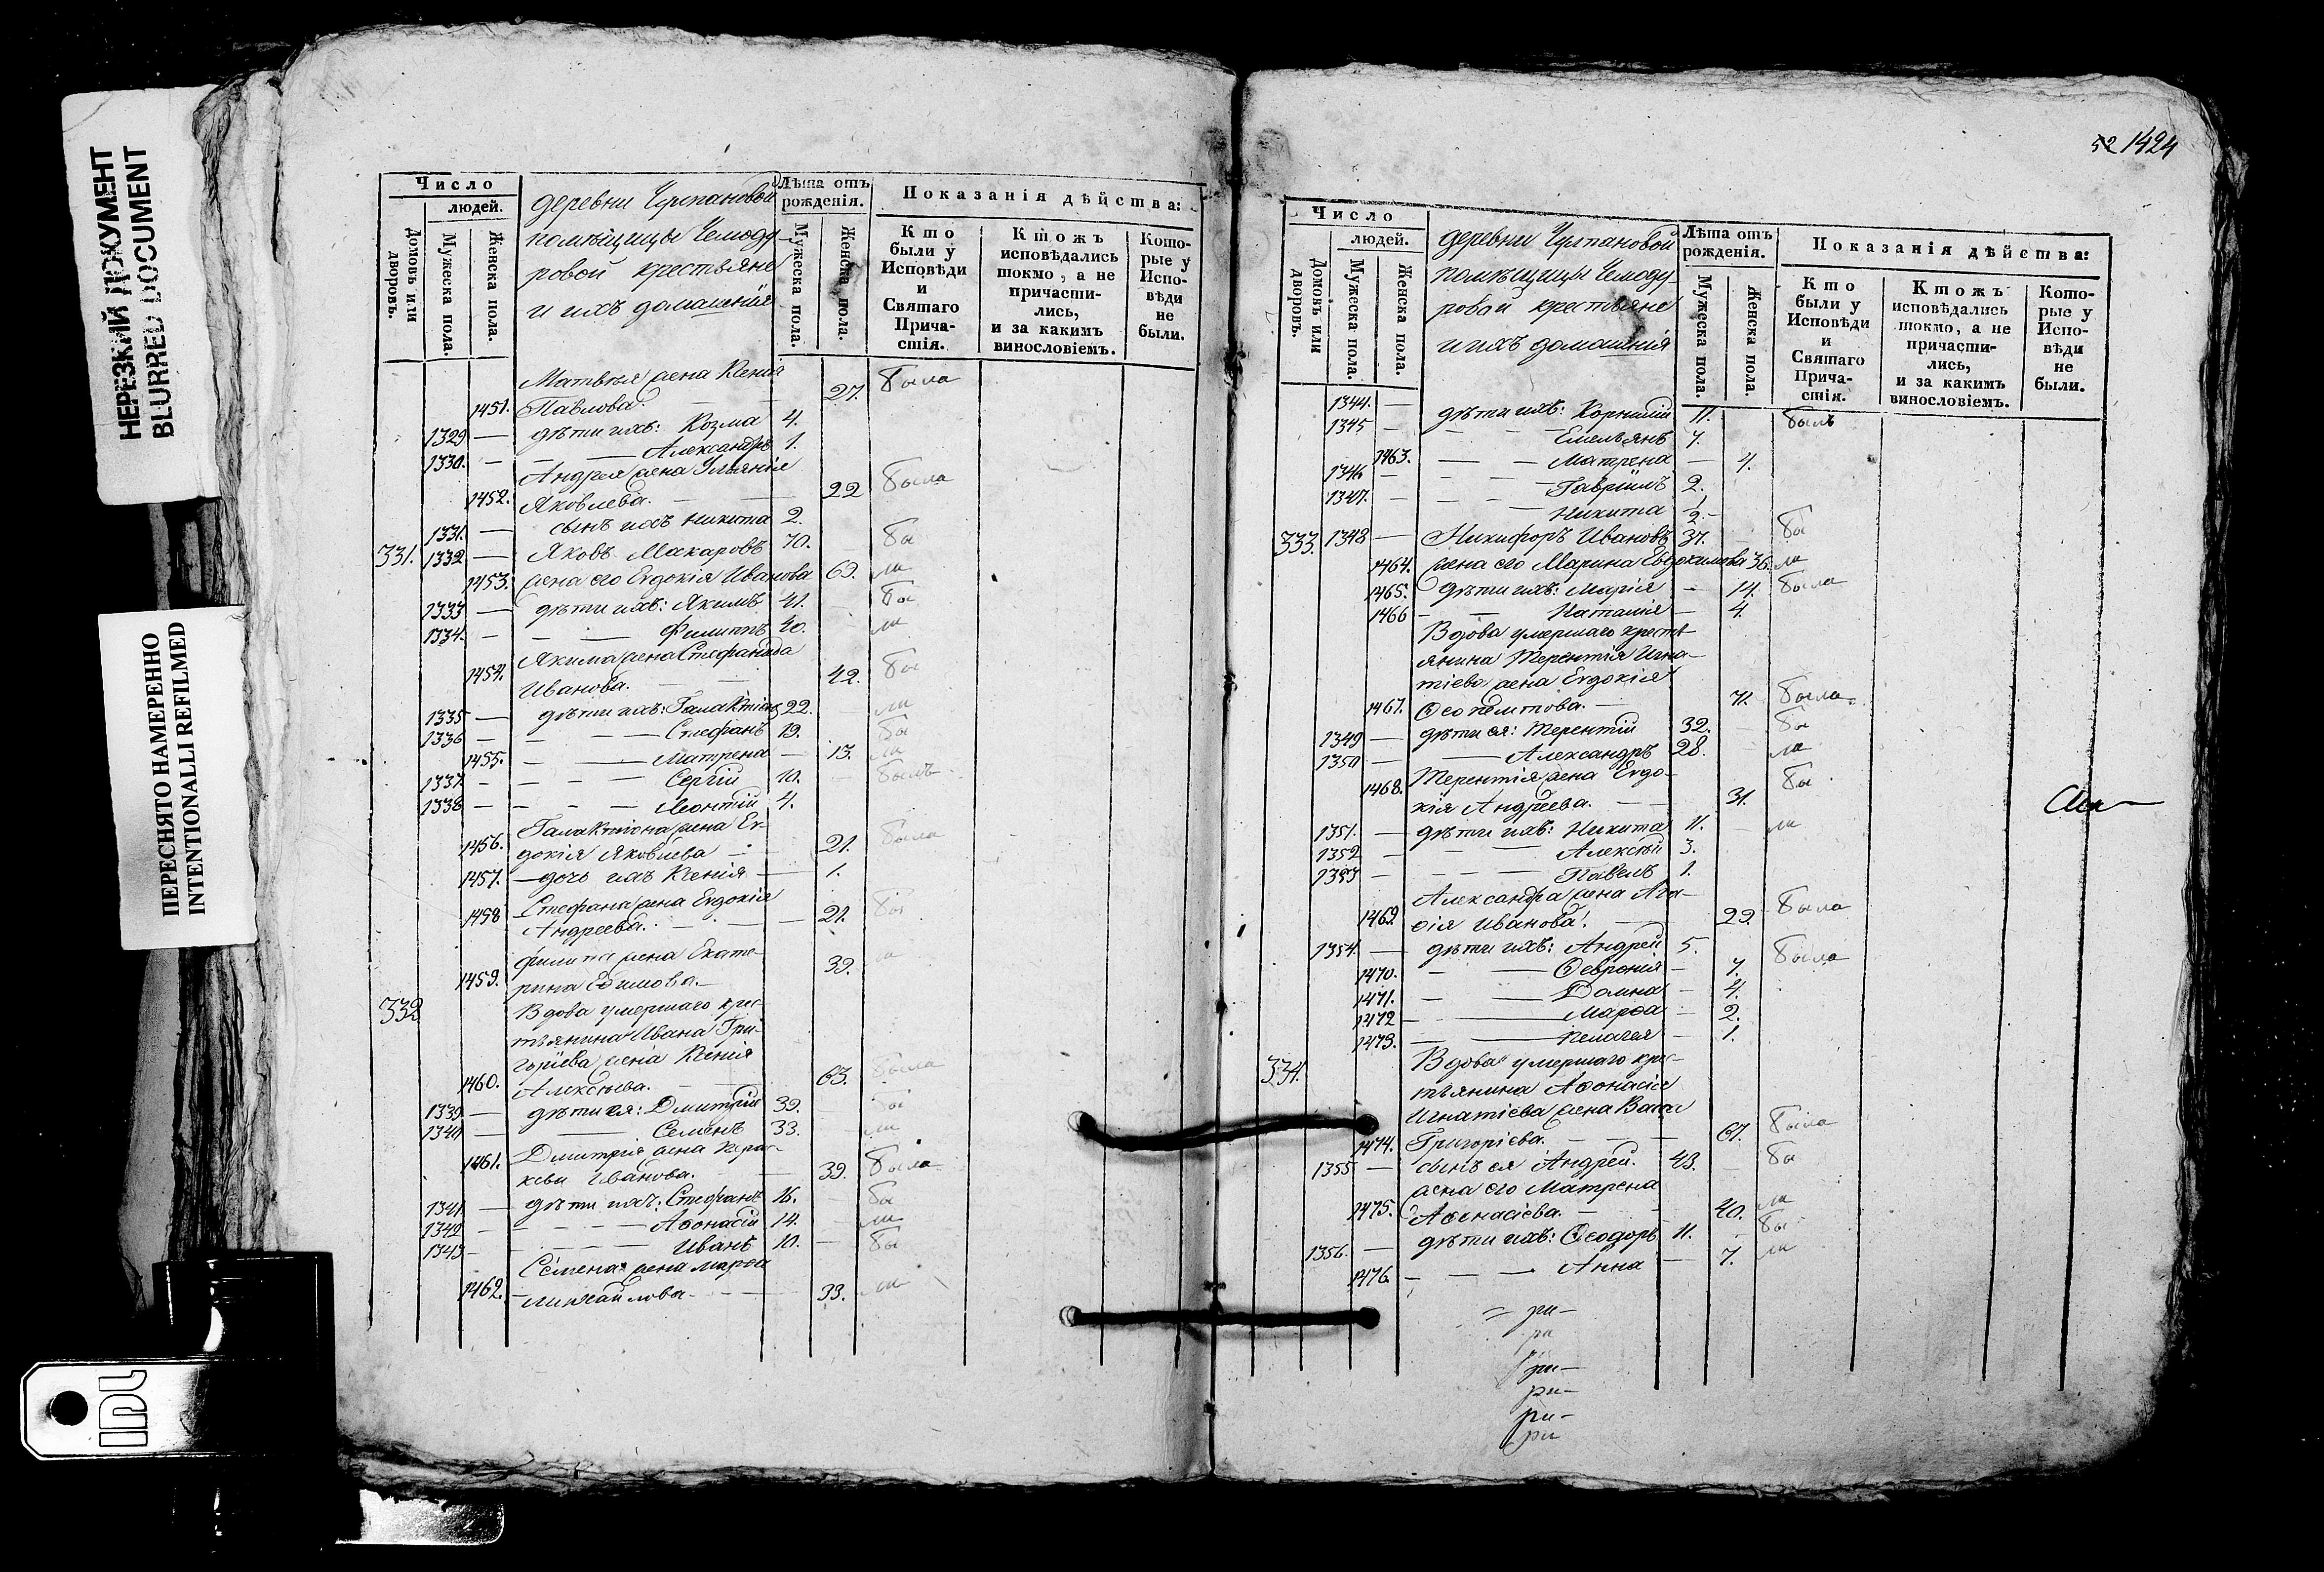 НЕРЕЗКИЙ ДОКУМЕНТ
BLURRED DOCUMENT
ПЕРЕСНЯТО НАМЕРЕННО
INTENTIONALLI REFILMED
Число
людей.
Домовъ или дворовъ.
Мужеска пола.
Женска пола.
деревни
помѣщицы Чемоду-
ровой крестьяне
и ихъ домашнія
Лѣта отъ рожденія.
Мужеска пола.
Женска пола.
Показанія дѣйства:
Кто были у Исповѣди и Святаго Причастія.
Ктожъ исповѣдались токмо, а не причастились, и за какимъ винословіемъ.
Которые у Исповѣди не были.
Матвѣя жена Ксенія
1451. Павлова. 27. была
1329 — дѣти ихъ: Козма 4.
1330. — Александръ 1.
Андрея жена Ульянія
1452. Яковлева. 22 была
1331. — сынъ ихъ Никита 2.
331. 1332 — Яковъ Макаровъ 70. бы
1453. жена его Евдокія Иванова 69. ли
1333 — дѣти ихъ: Якимъ 41. бы
1334. — Филиппъ 40. ли
Якима жена Стефанида
1454. Иванова. 42. бы
1335 — дѣти ихъ: Галактіонъ 22. ли
1336 — Стефанъ 19. бы
1455. — Матрена — 13. ли
1337 — Сергій 10. былъ
1338 — Леонтій 4.
Галактіона жена Ев-
1456. докія Яковлева 21. была
1457. — дочь ихъ Ксенія — 1.
1458 Стефана жена Евдокія
Андреева. 21. бы
Филипа жена Екате-
1459. рина Ефимова. 39. ли
332 Вдова умершаго крес-
тьянина Ивана Гри-
горіева жена Ксенія
1460. Алексѣева. 63. была
1339 — дѣти ея: Дмитрій 39. бы
1340 — Семенъ 33. ли
1461. Дмитрія жена Парас-
кеви Иванова. 39. была
1341 — дѣти ихъ: Стефанъ 16. бы
1342 — Аѳонасій 14. ли
1343 — Иванъ 10. бы
Семена жена Марѳа
1462. Михайлова 33. ли
52 1424
Число
людей.
Домовъ или дворовъ.
Мужеска пола.
Женска пола.
деревни
помѣщицы Чемоду-
ровой крестьяне
и ихъ домашнія
Лѣта отъ рожденія.
Мужеска пола.
Женска пола.
Показанія дѣйства:
Кто были у Исповѣди и Святаго Причастія.
Ктожъ исповѣдались токмо, а не причастились, и за какимъ винословіемъ.
Которые у Исповѣди не были.
1344. — дѣти ихъ: Корнилій 11. былъ
1345 — Емельянъ 7.
1463. — Матрена — 4.
1346 — Гавріилъ 2.
1347. — Никита
333. 1348 — Никифоръ Ивановъ 37. бы
1464. жена его Марина Евдокимова 36. ли
1465. дѣти ихъ: Марія — 14. была
1466 — Наталія — 4.
Вдова умершаго кресть-
янина Терентія Игна-
тіева жена Евдокія
1467. 71. была
1349 — дѣти ея: Терентій 32. бы
1350 — Александръ 28. ли
1468. Терентія жена Евдо-
кія Андреева. 31. бы
1351. — дѣти ихъ: Никита 11. ли
1352 — Алексѣй 3.
1353 — Павелъ 1.
Александра жена Ага-
1469 ѳія Иванова. 29. была
1354. — дѣти ихъ: Андрей 5.
1470. — Ѳевронія — 7. была
1471. — Домна — 4.
1472 — Марѳа — 2.
1473. — Пелагея — 1.
334. Вдова умершаго крес-
тьянина Аѳонасія
Игнатіева жена Васса
1474. Григоріева. 67. была
1355 — сынъ ея Андрей. 43. бы
жена его Матрена
1475. Аѳонасіева. 40. ли
1356. — дѣти ихъ: Ѳеодоръ 11. бы
1476 — Анна — 7. ли
ри-
ри
ри-
ри-
ри-
ри